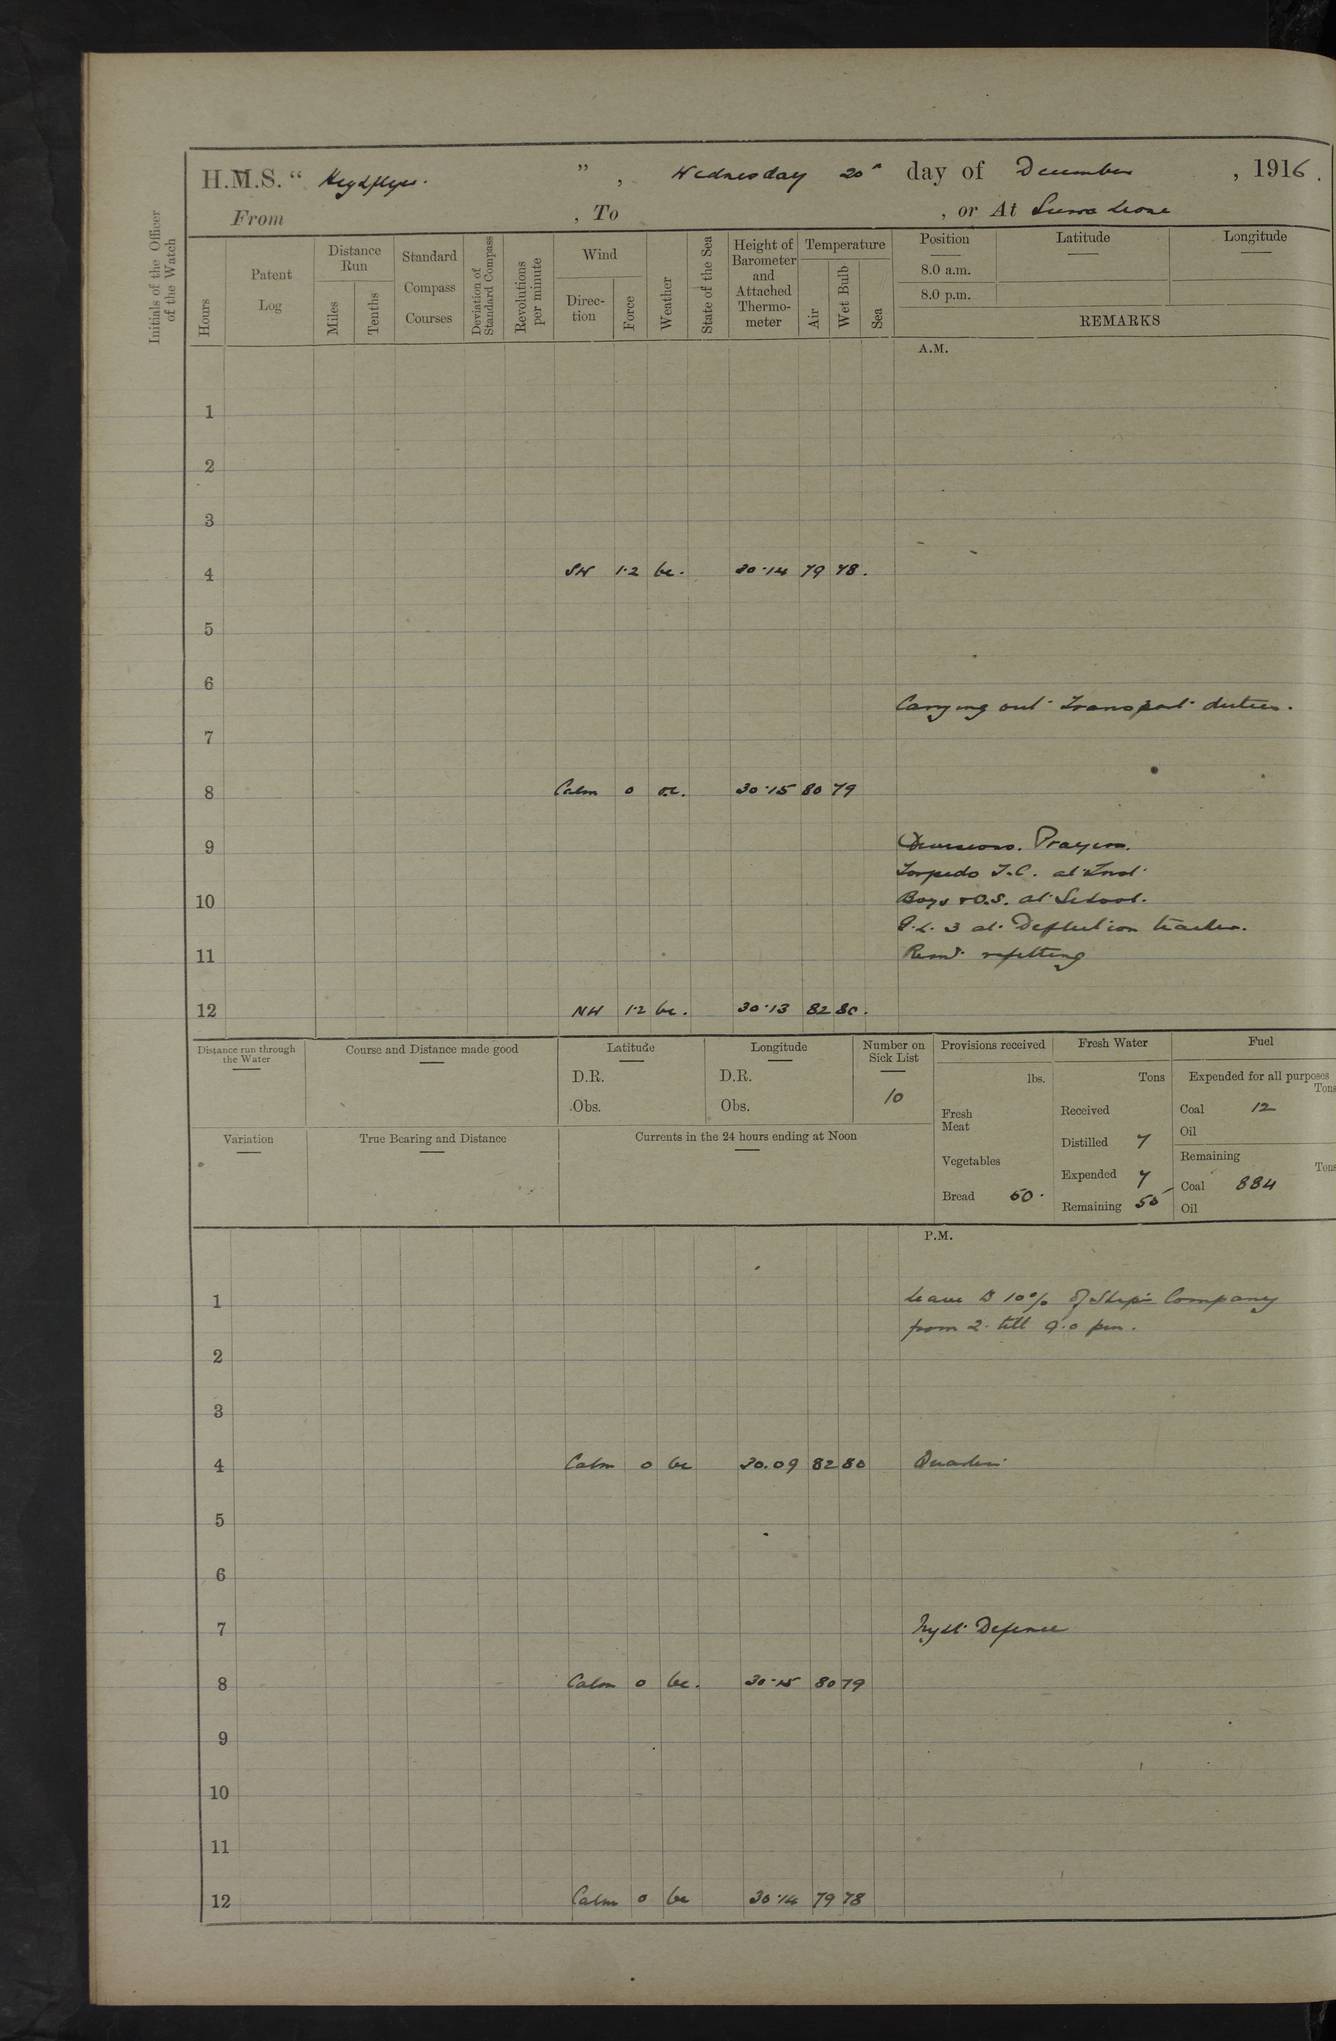 H.M.S. " Highflyer. " , Wednesday 20th day of December , 1916.
From , To , or At Sierra Leone
Initials of the Officer of the Watch
Hours
Patent Log
Distance Run
Miles
Tenths
Standard Compass Courses
Deviation of Standard Compass
Revolutions per minute
Wind
Direction
Force
Weather
State of the Sea
Height of Barometer and Attached Thermometer
Temperature
Air
Wet Bulb
Sea
Position Latitude Longitude
8.0 a.m.
8.0 p.m.
REMARKS
A.M.
1
2
3
4 SW 1·2 bc. 30·14 79 78.
5
6
Carrying out Transport duties.
7
8 Calm 0 oc. 30·15 80 79
Divisions. Prayers.
9
Torpedo T.C. at Inst.
10 Boys & O.S. at School.
G.L. 3 at Deflection teacher.
11 Remr. refitting
12 NW 1·2 bc. 30·13 82 80.
Distance run through the Water
Course and Distance made good
Latitude
D.R.
Obs.
Longitude
D.R.
Obs.
Number on Sick List
10
Provisions received
lbs.
Fresh Meat
Vegetables
Bread 50.
Fresh Water
Tons
Received
Distilled 7
Expended 7
Remaining 55
Fuel
Expended for all purposes
Tons
Coal 12
Oil
Remaining
Tons
Coal 884
Oil
Variation
True Bearing and Distance
Currents in the 24 hours ending at Noon
P.M.
1 Leave to 10% of Ship's Company
from 2. till 9.0 pm.
2
3
4 Calm 0 bc 30.09 82 80 Quarters
5
6
7 Night Defence
8 Calm 0 bc. 30·15 80 79
9
10
11
12 Calm 0 bc 30·14 79 78